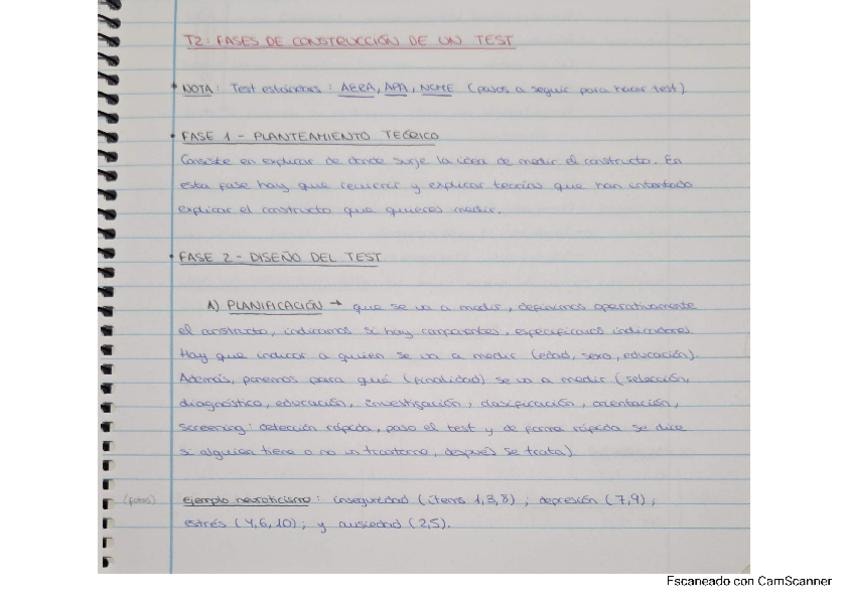 T2: FASES DE CONSTRUCCIÓN DE UN TEST
* NOTA: Test estándares: AERA, APA, NCME (pasos a seguir para hacer test)
• FASE 1 - PLANTEAMIENTO TEÓRICO
Consiste en explicar de donde surje la idea de medir el constructo. En
esta fase hay que revisar y explicar teorías que han intentado
explicar el constructo que quieres medir.
• FASE 2 - DISEÑO DEL TEST
A) PLANIFICACIÓN → que se va a medir, definimos operativamente
el constructo, indicamos si hay componentes, especificamos indicadores.
Hay que indicar a quien se va a medir (edad, sexo, educación).
Además, ponemos para qué (finalidad) se va a medir (selección,
diagnóstico, educación, investigación, clasificación, orientación,
screening: detección rápida, paso el test y de forma rápida se dice
si alguien tiene o no un trastorno, después se trata)
(fotos) ejemplo neuroticismo: inseguridad (ítems 1,3,8); depresión (7,9);
estrés (4,6,10); y ansiedad (2,5).
Escaneado con CamScanner